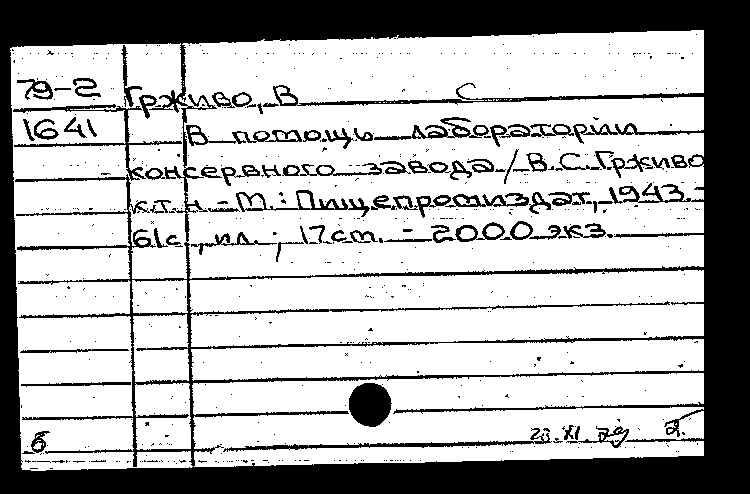 79-2 Грживо, В С
1641 В помощь лаборатории
консервного завода / В.С. Грживо
к.т.н. - М.: Пищепромиздат, 1943. -
61с., ил. ; 17 cm. - 2000 экз.
б 23.XI.79 2.